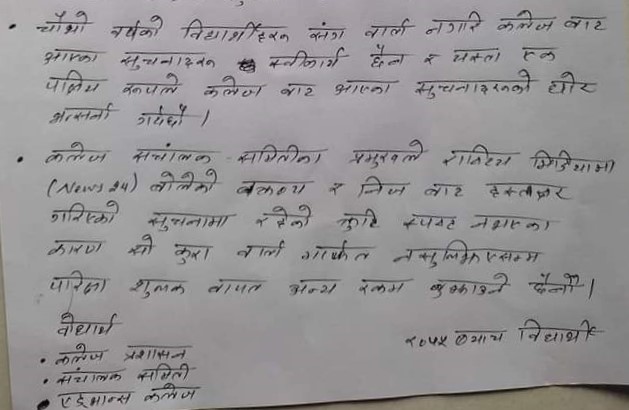 • चौथो वर्षको विद्यार्थीहरू संग वार्ता नगरि कलेज बाट
आएका सुचनाहरू स्वीकार्य छैन र यस्ता एक
पक्षिय रूपले कलेज बाट आएका सुचनाहरूको घोर
भत्सर्ना गर्दछौं ।
• कलेज संचालक समितीका प्रमुखले राष्ट्रिय मिडियामा
(News 24) बोलेको वक्तव्य र निज बाट हस्ताक्षर
गरिएको सुचनामा रहेको कुरा स्पष्ट नभएका
कारण सो कुरा वार्ता मार्फत नसुल्झिएसम्म
परिक्षा शुल्क वापत अन्य रकम बुझाउने छैनौं ।
वोधार्थ
• कलेज प्रशासन
२०७५ ब्याच विद्यार्थी
• संचालक समिती
• एडभान्स कलेज